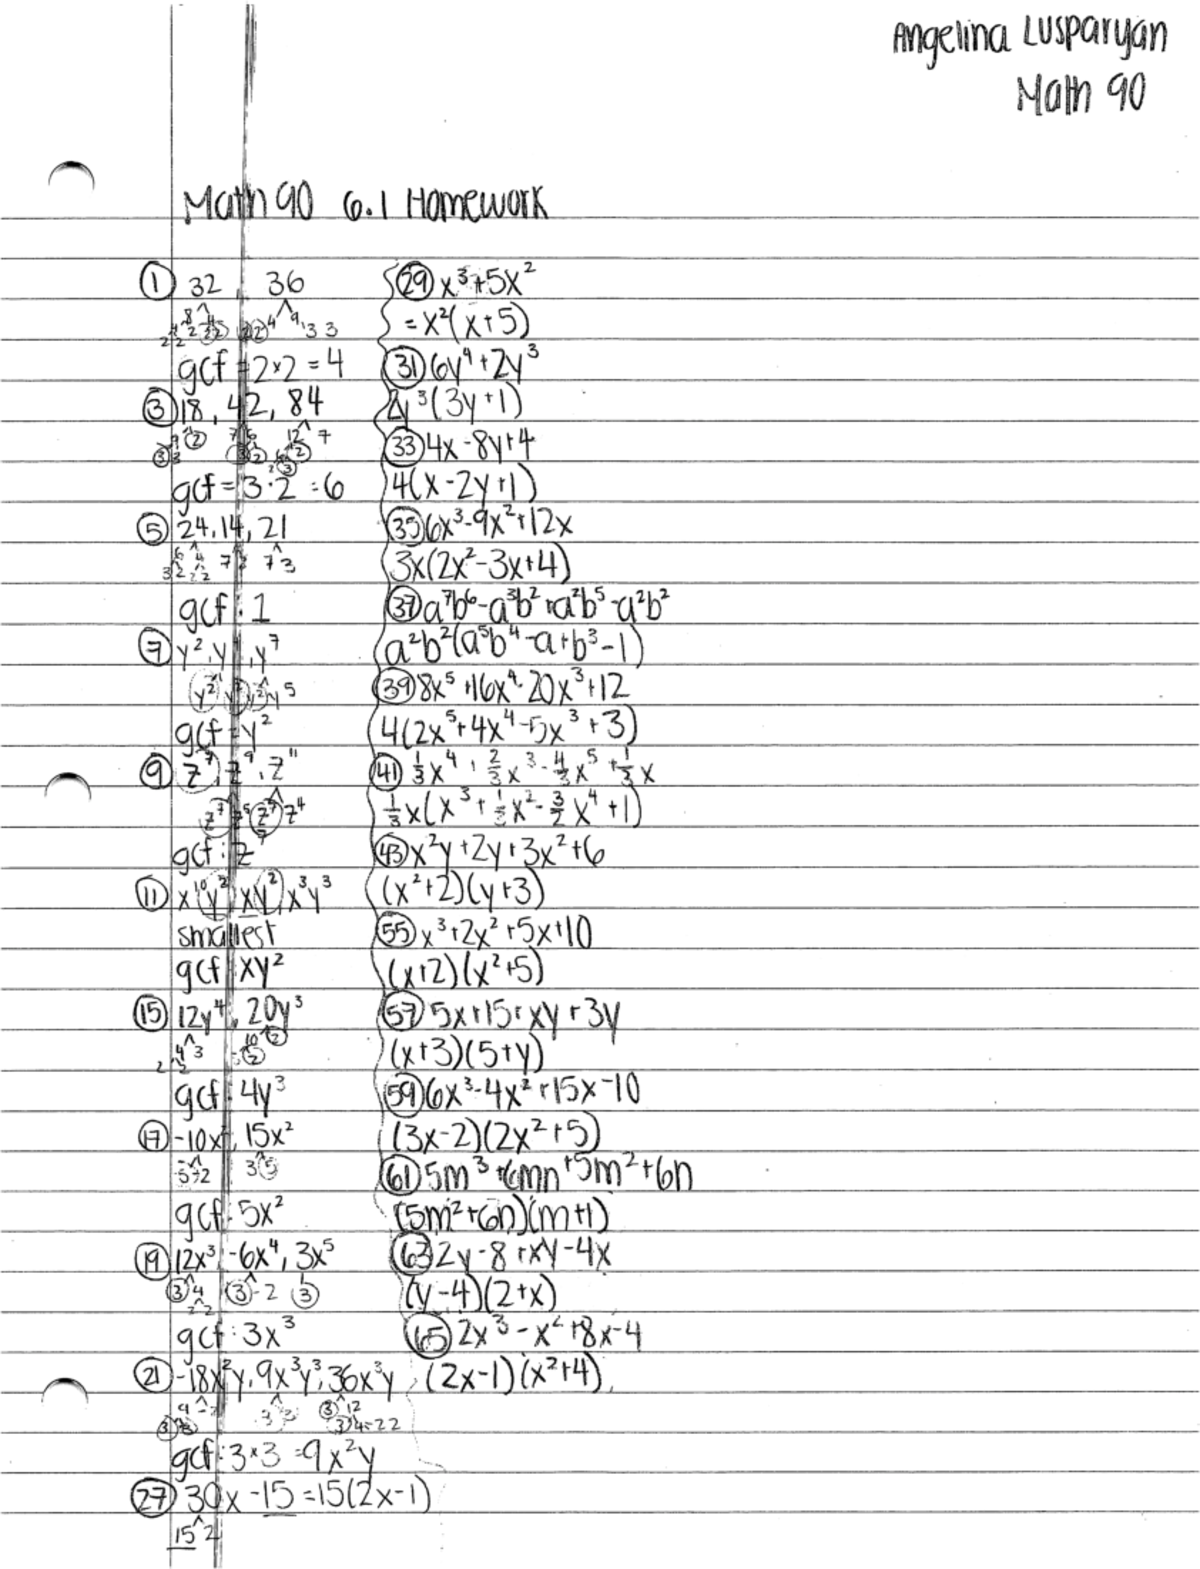 Angelina Lusparyan
Math 90
Math 90 6.1 Homework
① 32 36
8 4 4 9
4 2 2 2 2 2 3 3
2 2
gcf = 2×2 = 4
③ 18, 42, 84
9 2 7 6 12 7
3 3 3 2 6 2
2 3
gcf = 3·2 = 6
⑤ 24, 14, 21
6 4 7 2 7 3
3 2 2 2
gcf: 1
⑦ y², y⁴, y⁷
y² y² y² y⁵
gcf = y²
⑨ z⁷, z⁹, z¹¹
z⁷ z⁷ z⁴
gcf: z⁷
⑪ x¹⁰y², xy², x³y³
smallest
gcf: xy²
⑮ 12y⁴, 20y³
4 3 10 2
2 2 2
gcf: 4y³
⑰ -10x², 15x²
-5 2 3 5
gcf: 5x²
⑲ 12x³, -6x⁴, 3x⁵
3 4 3 -2 3
2 2
gcf: 3x³
㉑ -18x²y, 9x³y³, 36x³y
9 -2 3 3 3 12
3 3 3 4=22
gcf: 3×3 = 9x²y
㉗ 30x - 15 = 15(2x-1)
15 2
㉙ x³+5x²
= x²(x+5)
㉛ 6y⁴+2y³
2y³(3y+1)
㉝ 4x-8y+4
4(x-2y+1)
㉟ 6x³-9x²+12x
3x(2x²-3x+4)
㊲ a⁷b⁶-a³b²+a²b⁵-a²b²
a²b²(a⁵b⁴-a+b³-1)
㊴ 8x⁵+16x⁴-20x³+12
4(2x⁵+4x⁴-5x³+3)
㊶ ⅓x⁴+⅔x³-4/3x⁵+⅓x
⅓x(x³+⅓x²-3/2x⁴+1)
㊸ x²y+2y+3x²+6
(x²+2)(y+3)
(55) x³+2x²+5x+10
(x+2)(x²+5)
(57) 5x+15+xy+3y
(x+3)(5+y)
(59) 6x³-4x²+15x-10
(3x-2)(2x²+5)
(61) 5m³+6mn+5m²+6n
(5m²+6n)(m+1)
(63) 2y-8+xy-4x
(y-4)(2+x)
(65) 2x³-x²+8x-4
(2x-1)(x²+4)